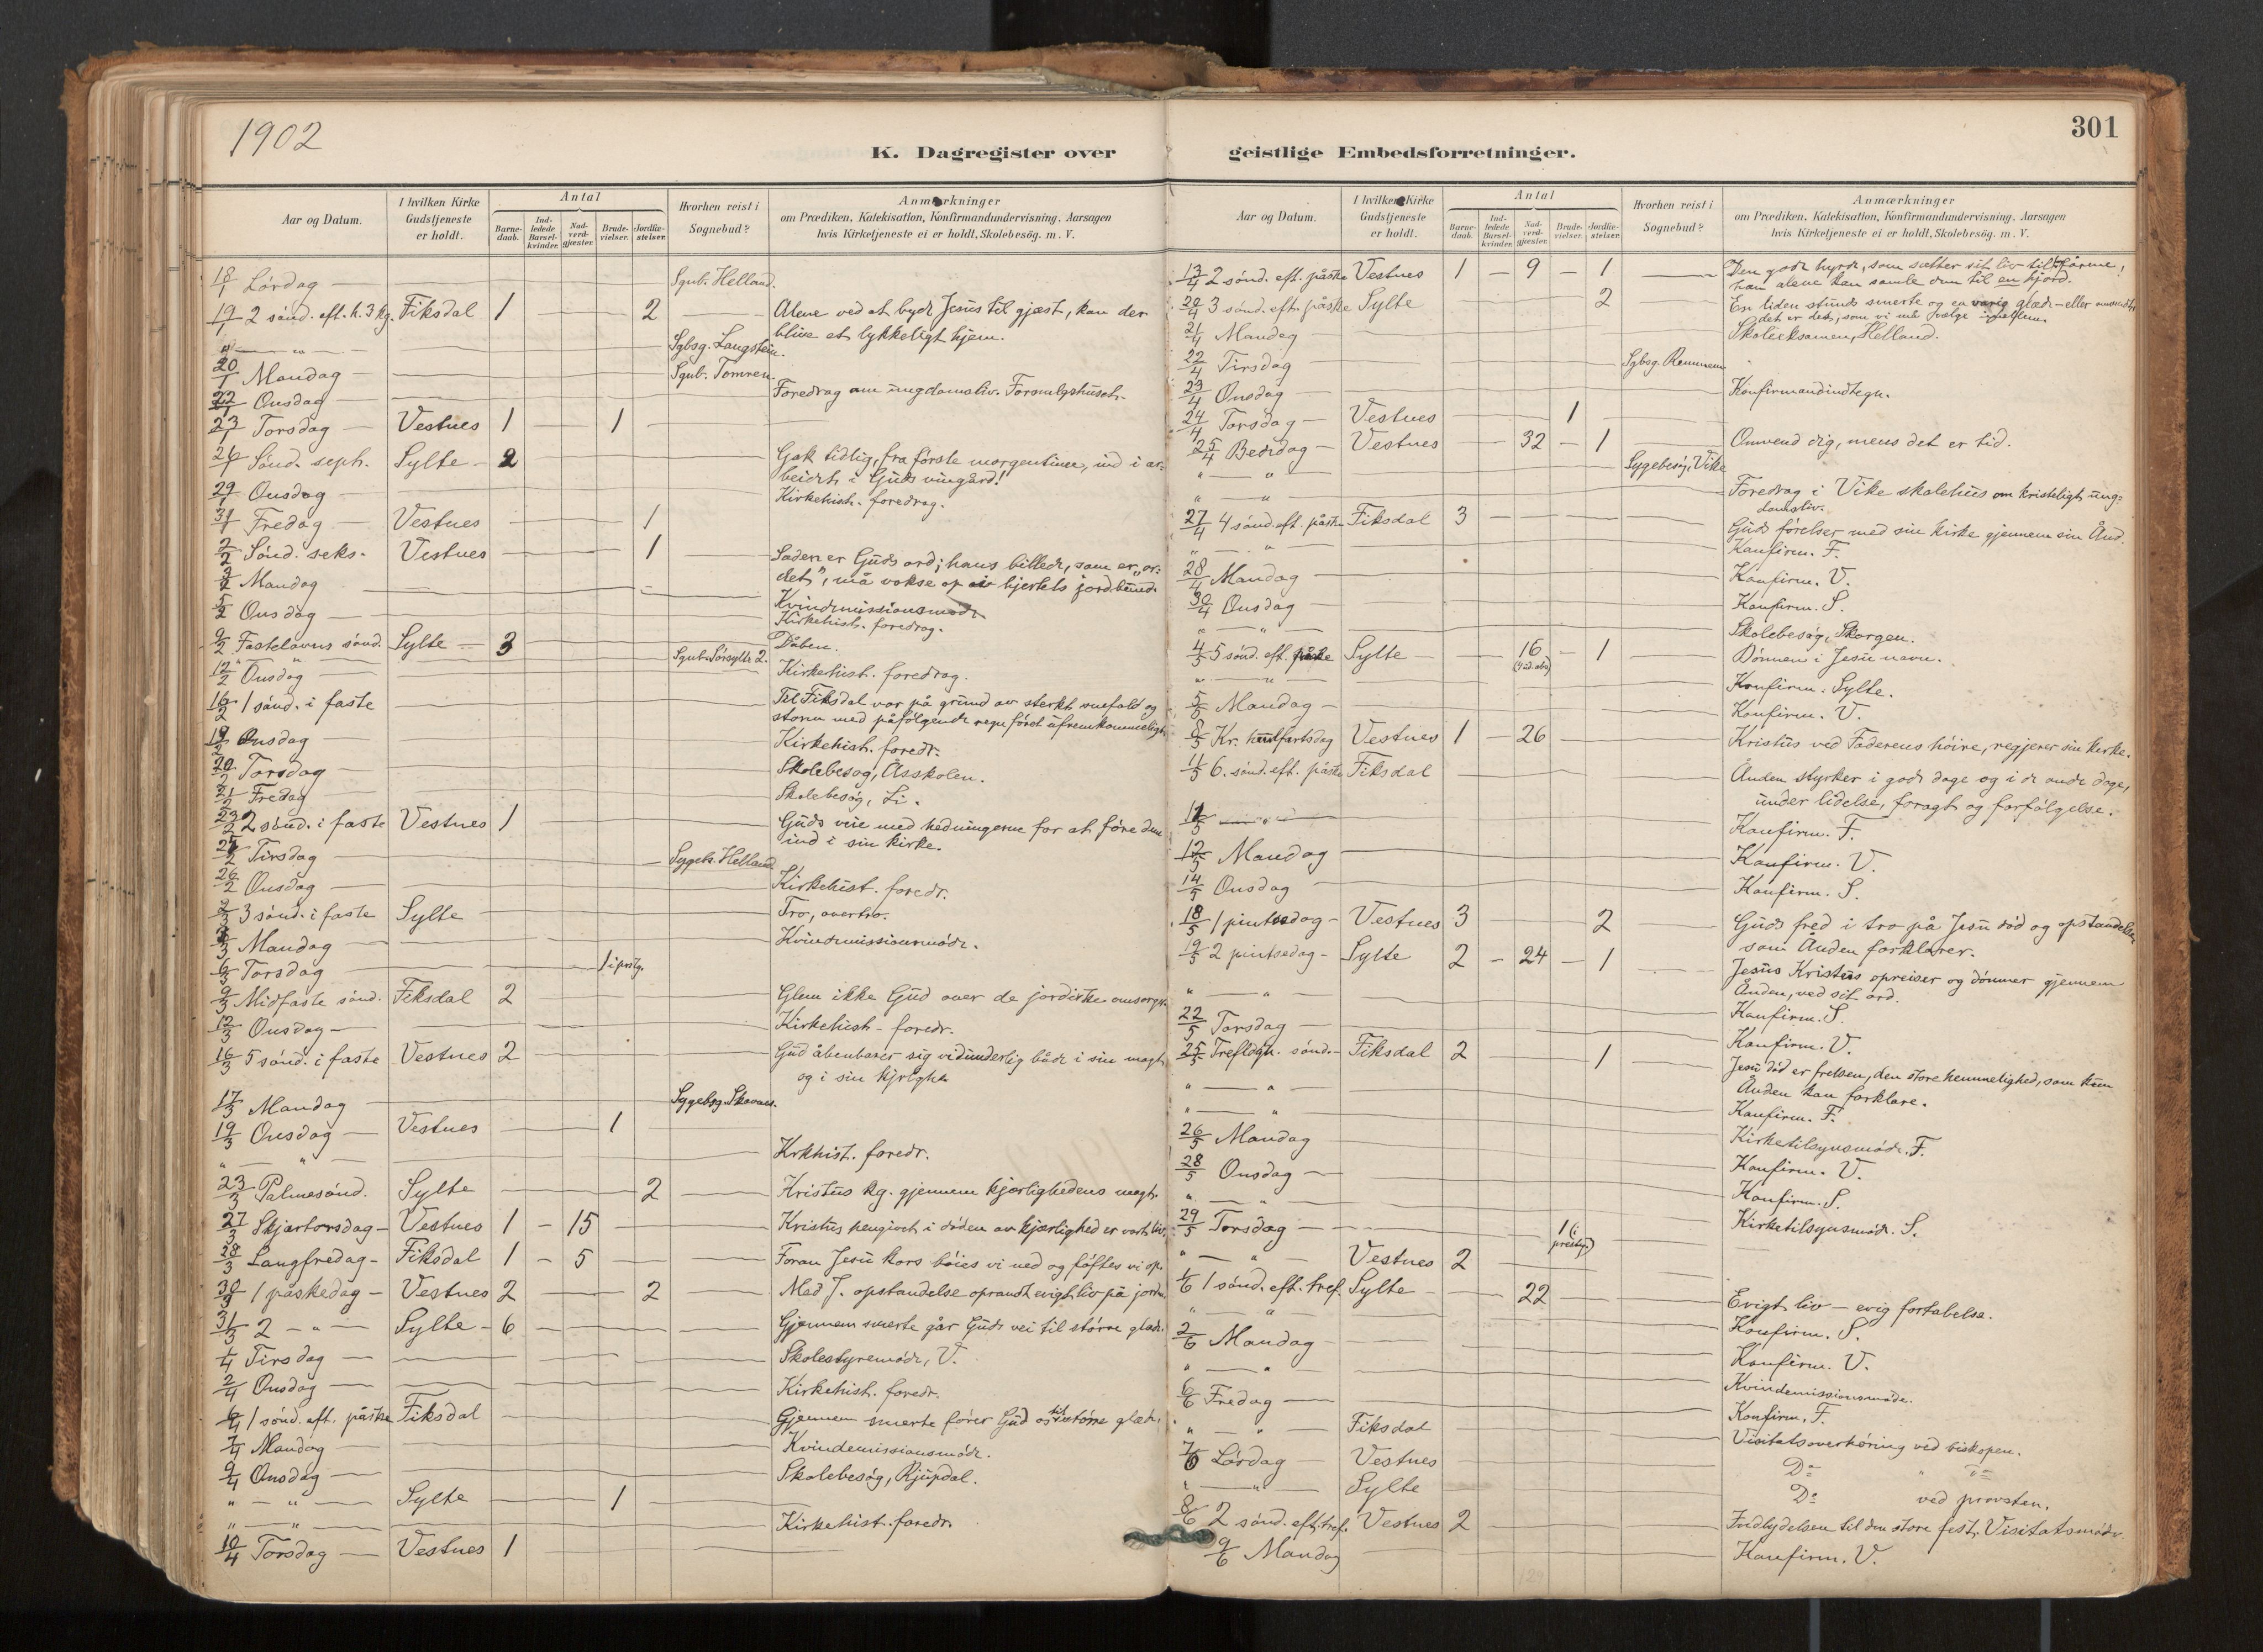 1902
K. Dagregister over
Aar og Datum.
I hvilken Kirke Gudstjeneste er holdt.
Antal
Barnedaab.
Indledede Barselkvinder.
Nadverdgjæster.
Brudevielser.
Jordfæstelser.
Hvorhen reist i Sognebud?
Anmærkninger
om Prædiken, Katekisation, Konfirmandundervisning, Aarsagen
hvis Kirketjeneste ei er holdt, Skolebesøg. m. V.
18/1 Lørdag — Sgnb. Helland.
19/1 2 sønd. eft. h. 3 kg. Fiksdal 1 — 2 — Alene ved at byde Jesus til gjæst, kan der
blive et lykkeligt hjem.
" — " — Sgbsg. Langstein.
20/1 Mandag — Sgnb. Tomren.
22/1 Onsdag — Foredrag om ungdomsliv. Forsmlgshuset.
23/1 Torsdag — Vestnes 1 — 1 —
26/1 Sønd. sept. Sylte — 2 Gak tidlig, fra første morgentime, ind i ar-
beidet i Guds vingård!
29/1 Onsdag — Kirkehist. foredrag.
31/1 Fredag — Vestnes — 1
2/2 Sønd. seks. Vestnes — 1 Sæden er Guds ord; hans billede, som er "or-
det", må vokse op i hjertets jordbund.
3/2 Mandag — Kvindemissionsmøde
5/2 Onsdag — Kirkehist. foredrag.
9/2 Fastelavns sønd. Sylte — 3 Dåben.
" " Sgnb. Sørsylte 2.
12/2 Onsdag — Kirkehist. foredrag.
16/2 1 sønd. i faste Til Fiksdal var på grund av sterkt snefald og
storm med påfølgende regn føret ufremkommeligt.
19/2 Onsdag — Kirkehist. foredr.
20/2 Torsdag — Skolebesøg, Åsskolen.
21/2 Fredag — Skolebesøg, Li.
23/2 2 sønd. i faste Vestnes 1 Guds veie med hedningerne for at føre dem
ind i sin kirke.
Tirsdag — Sygebs. Helland
26/2 Onsdag — Kirkehist. foredr.
2/3 3 sønd. i faste Sylte — Tro, overtro.
3/3 Mandag — Kvindemissionsmøde.
6/3 Torsdag — 1 i prstg.
9/3 Midfaste sønd. Fiksdal 2 Glem ikke Gud over de jordiske omsorger.
12/3 Onsdag — Kirkehist. foredr.
16/3 5 sønd. i faste Vestnes 2 Gud åbenbarer sig vidunderlig både i sin magt
og i sin kjrlghe
17/3 Mandag — Sygebsg. Skavnes.
19/3 Onsdag — Vestnes — 1
" — " — Krkhist. foredr.
23/3 Palmesønd. Sylte — 2 — Kristus kg. gjennem kjærlighedens magt.
27/3 Skjærtorsdag — Vestnes 1 — 15 — Kristus hengivet i døden av kjærlighed er vort liv.
28/3 Langfredag — Fiksdal 1 — 5 — Foran Jesu kors bøies vi ned og løftes vi op.
30/3 1 påskedag — Vestnes 2 — 2 — Med J. opstandelse oprandt evigt liv på jorden.
31/3 2 — " — Sylte — 6 — Gjennem smerte går Guds vei til større glæde.
1/4 Tirsdag — Skolestyremøde, V.
2/4 Onsdag — Kirkehist. foredr.
6/4 1 sønd. eft. påske Fiksdal — Gjennem smerte fører Gud os til større glæde.
7/4 Mandag — Kvindemissionsmøde.
9/4 Onsdag — Skolebesøg, Kjupdal.
" — " — Sylte — 1
" — " — Kirkehist. foredr.
10/4 Torsdag — Vestnes 1 —
301
geistlige Embedsforretninger.
Aar og Datum.
I hvilken Kirke Gudstjeneste er holdt.
Antal
Barnedaab.
Indledede Barselkvinder.
Nadverdgjæster.
Brudevielser.
Jordfæstelser.
Hvorhen reist i Sognebud?
Anmærkninger
om Prædiken, Katekisation, Konfirmandundervisning, Aarsagen
hvis Kirketjeneste ei er holdt, Skolebesøg. m. V.
13/4 2 sønd. eft. påske Vestnes 1 — 9 — 1 — Den gode hyrde, som sætter sit liv til for fårene,
han alene kan samle dem til en hjord.
20/4 3 sønd. eft. påske Sylte — 2 En liden stunds smerte og en varig glæde — eller omvendt,
det er det, som vi må vælge imellem.
21/4 Mandag Skoleeksamen, Helland.
22/4 Tirsdag — Sgbsg. Remmem
23/4 Onsdag — Konfirmandindtegn.
24/4 Torsdag — Vestnes — 1 —
25/4 Bededag — Vestnes — 32 — 1 — Omvend dig, mens det er tid.
" — " Sygebesøg, Vike
" — " Foredrag i Vike skolehus om kristeligt ung-
domsliv.
27/4 4 sønd. eft. påske Fiksdal 3 — Guds førelser med sin kirke gjennem sin Ånd.
" — " Konfirm. F.
28/4 Mandag — Konfirm. V.
30/4 Onsdag — Konfirm. S.
" — " — Skolebesøg, Skorgen.
4/5 5 sønd. eft. påske Sylte — 16 — 1 — Bønnen i Jesu navn.
" — " — Konfirm. Sylte.
5/5 Mandag — Konfirm. V.
8/5 Kr. himlfartsdag Vestnes 1 — 26 — Kristus ved Faderens høire, regjerer sin kirke.
11/5 6. sønd. eft. påske Fiksdal — Ånden styrker i gode dage og i de onde dage,
under lidelse, foragt og forfølgelse.
11/5 — " — Konfirm. F.
12/5 Mandag — Konfirm. V.
14/5 Onsdag — Konfirm. S.
18/5 1 pintsedag — Vestnes 3 — 2 Guds fred i tro på Jesu død og opstandelse,
som Ånden forklarer.
19/5 2 pintsedag — Sylte 2 — 24 — 1 — Jesus Kristus opreiser og dømmer gjennem
Ånden, ved sit ord.
" — " Konfirm. S.
22/5 Torsdag — Konfirm. V.
25/5 Trefldgh. sønd. — Fiksdal 2 — 1 Jesu død er frelsen, den store hemmelighed, som kun
Ånden kan forklare.
" — " — Konfirm. F.
" — " Kirketilsynsmøde. F.
26/5 Mandag Konfirm. V.
28/5 Onsdag — Konfirm. S.
" — " Kirketilsynsmøde. S.
29/5 Torsdag — 1 (i prestg.)
" — " Vestnes 2 —
1/6 1 sønd. eft. tref. Sylte — 22 — Evigt liv — evig fortabelse.
" — " Konfirm. S.
2/6 Mandag Konfirm. V.
" — " Kvindemissionsmøde.
6/6 Fredag — Konfirm. F.
" — " — Fiksdal Visitatsoverhøring ved biskopen.
7/6 Lørdag — Vestnes — Do " Do
" — " — Sylte — Do ved provsten.
8/6 2 sønd. eft. tref. Vestnes 2 — Indbydelsen til den store fest. Visitatsmøde
9/6 Mandag Konfirm. V.